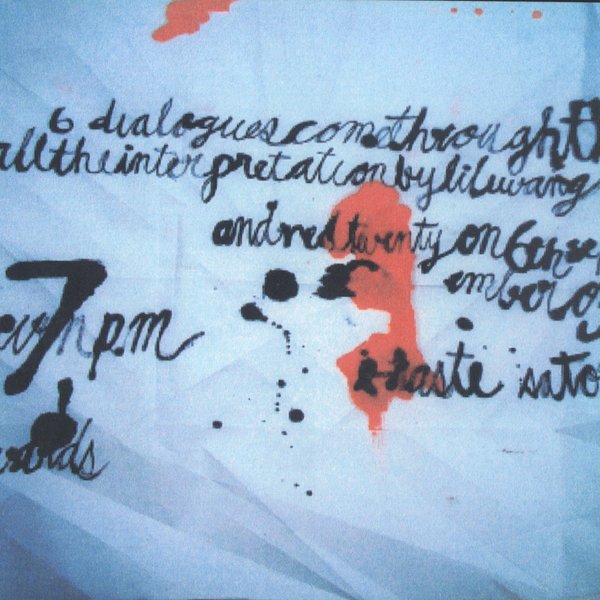 6 dialogues come through th
all the interpretation by lili wang
and red twenty on 6th sep
ember 09
7 p.m
haste sato
words